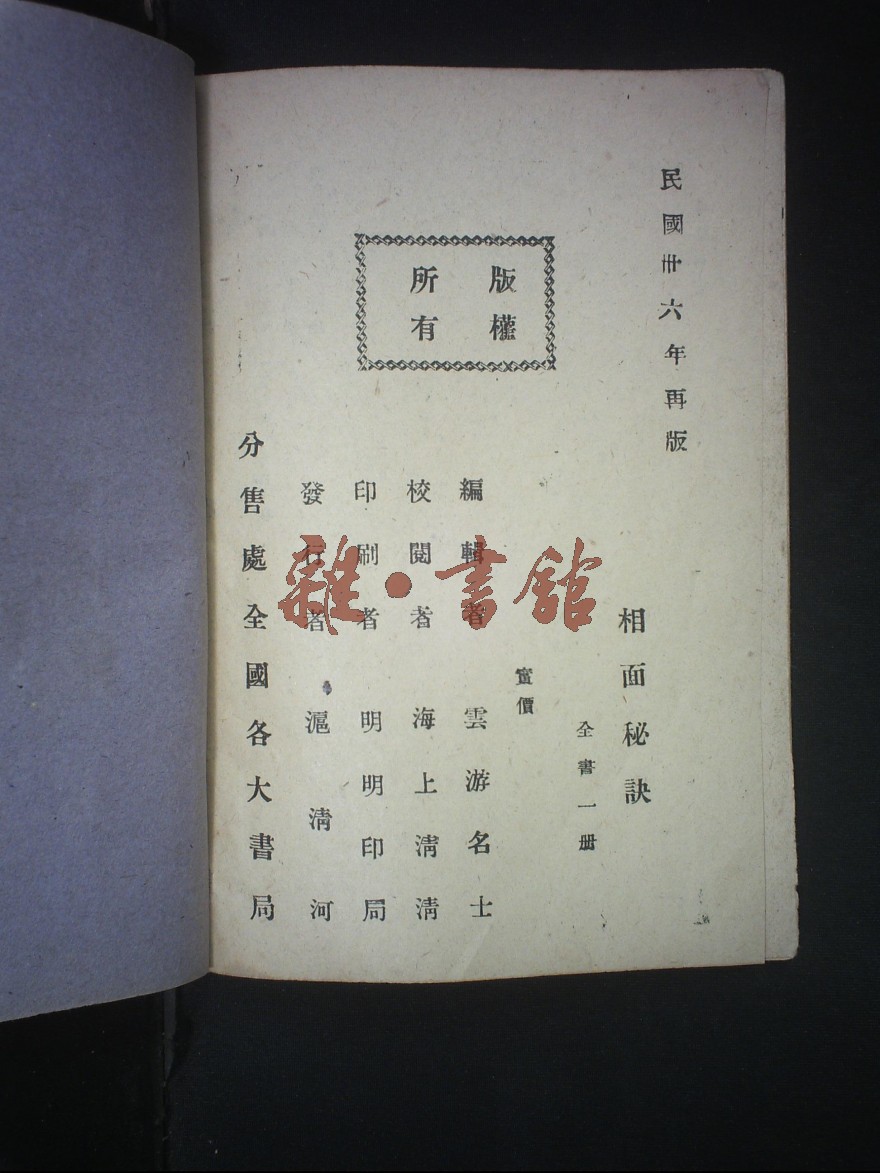 民國卅六年再版
相面秘訣
全書一册
實價
版權
所有
編輯者 雲游名士
校閱者 海上清清
印刷者 明明印局
發行者 滬清河
分售處全國各大書局
雜·書館